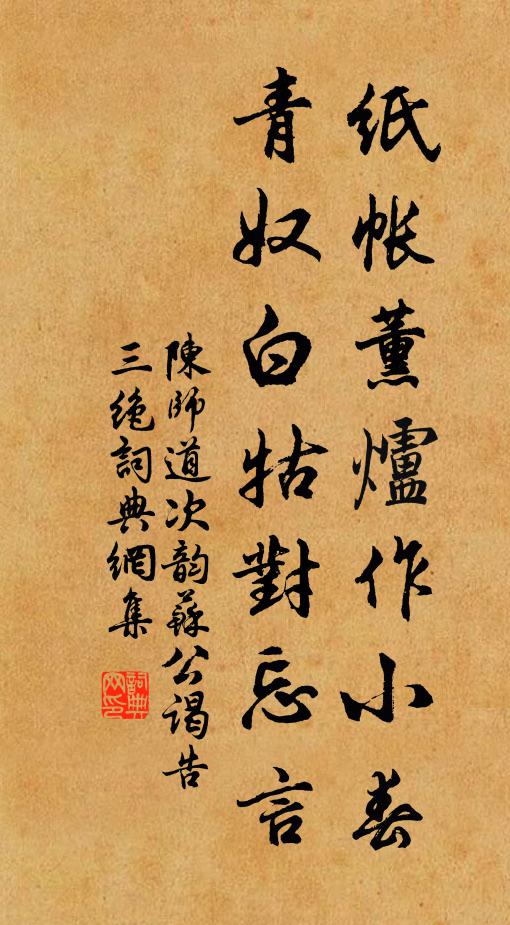 紙帳薰爐作小春
青奴白牯對忘言
陳師道次韵蘇公謁告
三絶詞典網集
詞典网印